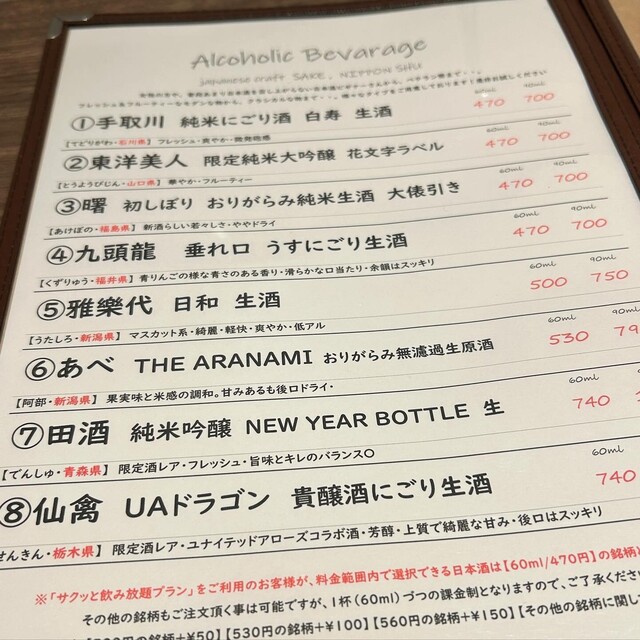 Alcoholic Bevarage
japanese craft SAKE、NIPPON SHU
フレッシュ&フルーティーなモダンな物から、クラシカルな物まで
60ml 90ml
①手取川 純米にごり酒 白寿 生酒 470 700
【てどりがわ・石川県】 フレッシュ・爽やか・微発泡感
60ml 90ml
②東洋美人 限定純米大吟醸 花文字ラベル 470 700
【とうようびじん・山口県】 華やか・フルーティー
60ml 90ml
③曙 初しぼり おりがらみ純米生酒 大俵引き 470 700
【あけぼの・福島県】 新酒らしい若々しさ・ややドライ
60ml 90ml
④九頭龍 垂れ口 うすにごり生酒 470 700
【くずりゅう・福井県】 青りんごの様な青さのある香り・滑らかな口当たり・余韻はスッキリ
60ml 90ml
⑤雅樂代 日和 生酒 500 750
【うたしろ・新潟県】 マスカット系・綺麗・軽快・爽やか・低アル
60ml 90ml
⑥あべ THE ARANAMI おりがらみ無濾過生原酒 530 79
【阿部・新潟県】 果実味と米感の調和。甘みあるも後口ドライ・
60ml
⑦田酒 純米吟醸 NEW YEAR BOTTLE 生 740
【でんしゅ・青森県】 限定酒レア・フレッシュ・旨味とキレのバランス〇
60ml
⑧仙禽 UAドラゴン 貴醸酒にごり生酒 740
せんきん・栃木県】 限定酒レア・ユナイテッドアローズコラボ酒・芳醇・上質で綺麗な甘み・後口はスッキリ
※「サクッと飲み放題プラン」をご利用のお客様が、料金範囲内で選択できる日本酒は【60ml/470円】の銘柄
その他の銘柄もご注文頂く事は可能ですが、1杯(60ml)づつの課金制となりますので、ご了承ください
円の銘柄+¥50】【530円の銘柄+¥100】【560円の銘柄+¥150】【その他の銘柄に関して